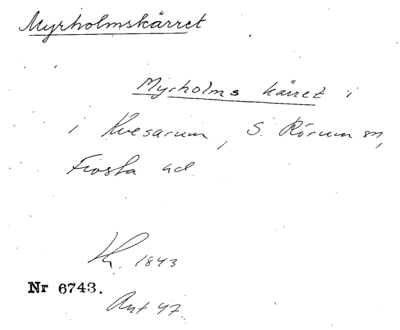 Myrholmskärret
Myrholms kärret i
i Kvesarum, S. Rörum sn,
Frosta hd.
1843
Nr 6743.
Ant 47.